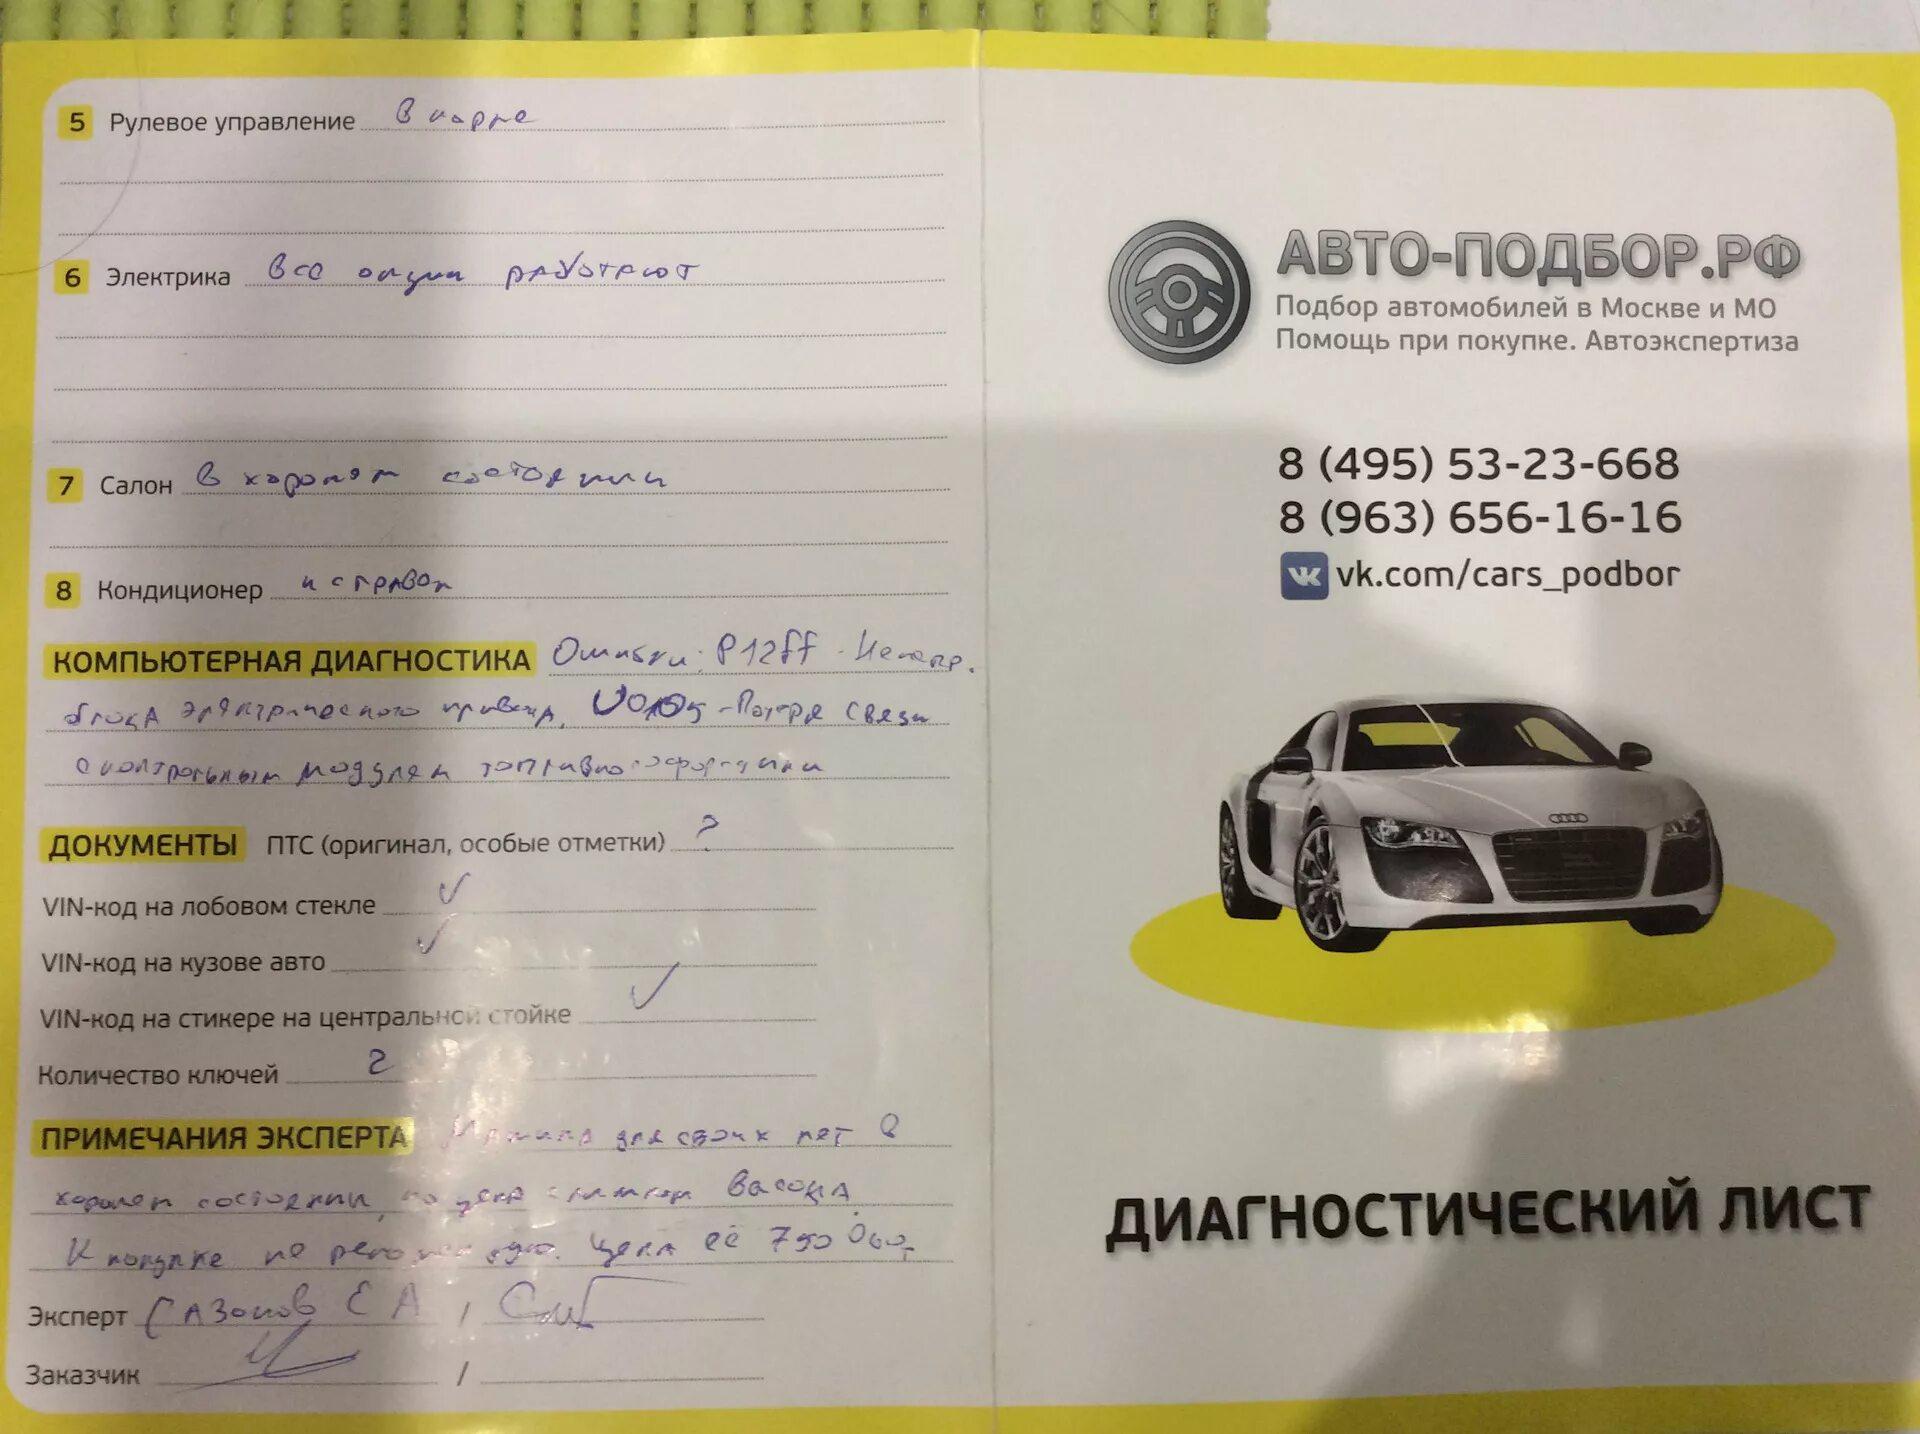 5 Рулевое управление в норме
6 Электрика все опции работают
7 Салон в хорошем состоянии
8 Кондиционер исправен
КОМПЬЮТЕРНАЯ ДИАГНОСТИКА Ошибки: P12ff - Неиспр.
блока электрического привода, U0105 - Потеря связи
с контрольным модулем топливной форсунки
ДОКУМЕНТЫ ПТС (оригинал, особые отметки) ?
VIN-код на лобовом стекле ✓
VIN-код на кузове авто ✓
VIN-код на стикере на центральной стойке ✓
Количество ключей 2
ПРИМЕЧАНИЯ ЭКСПЕРТА Машина для своих лет в
хорошем состоянии, но цена слишком высока
К покупке не рекомендую. Цена её 750 000
Эксперт Сазонов Е А /
Заказчик /
АВТО-ПОДБОР.РФ
Подбор автомобилей в Москве и МО
Помощь при покупке. Автоэкспертиза
8 (495) 53-23-668
8 (963) 656-16-16
vk.com/cars_podbor
ДИАГНОСТИЧЕСКИЙ ЛИСТ